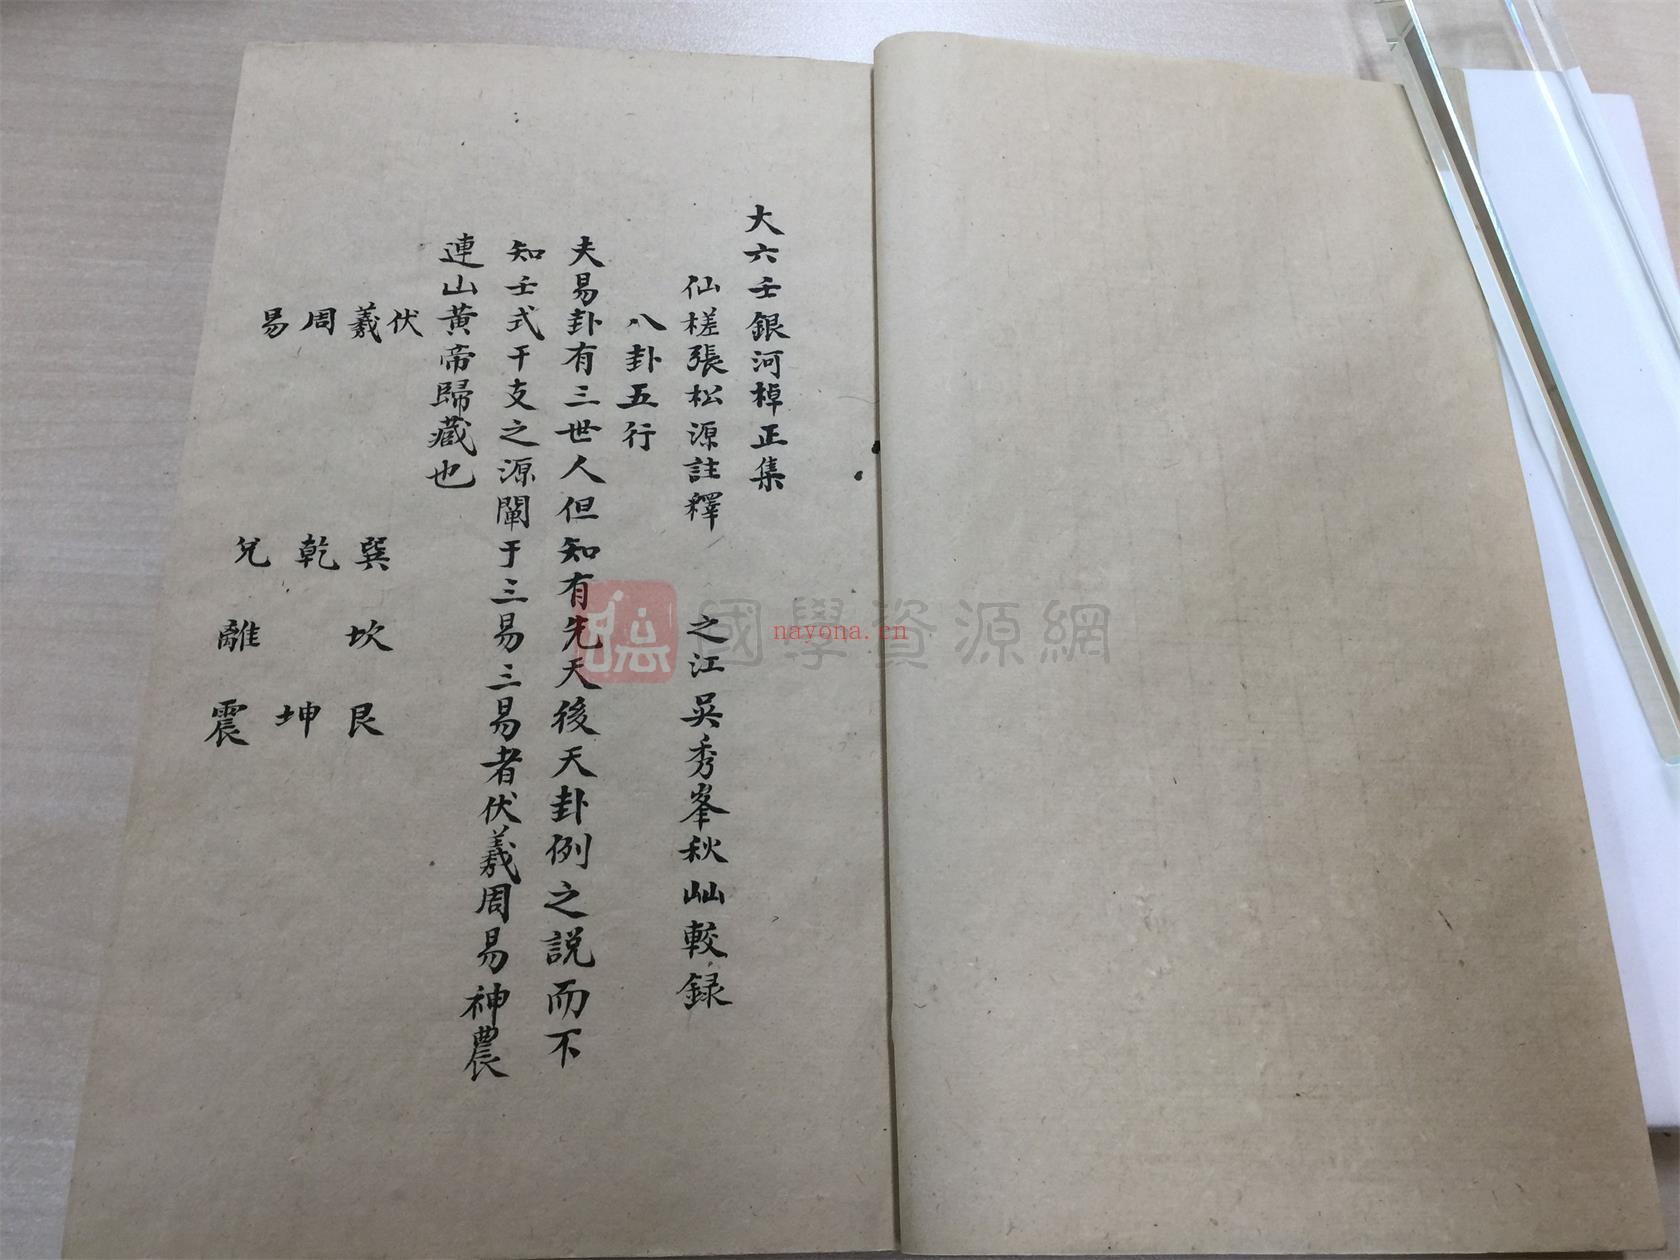 大六壬銀河棹正集
仙槎張松源註釋　之江吳秀峯秋山較錄
八卦五行
夫易卦有三世人但知有先天後天卦例之説而不
知壬式干支之源闡于三易三易者伏羲周易神農
連山黄帝歸藏也
伏羲周易
巽乾兌
坎離
艮坤震
國學資源網
nayona.cn